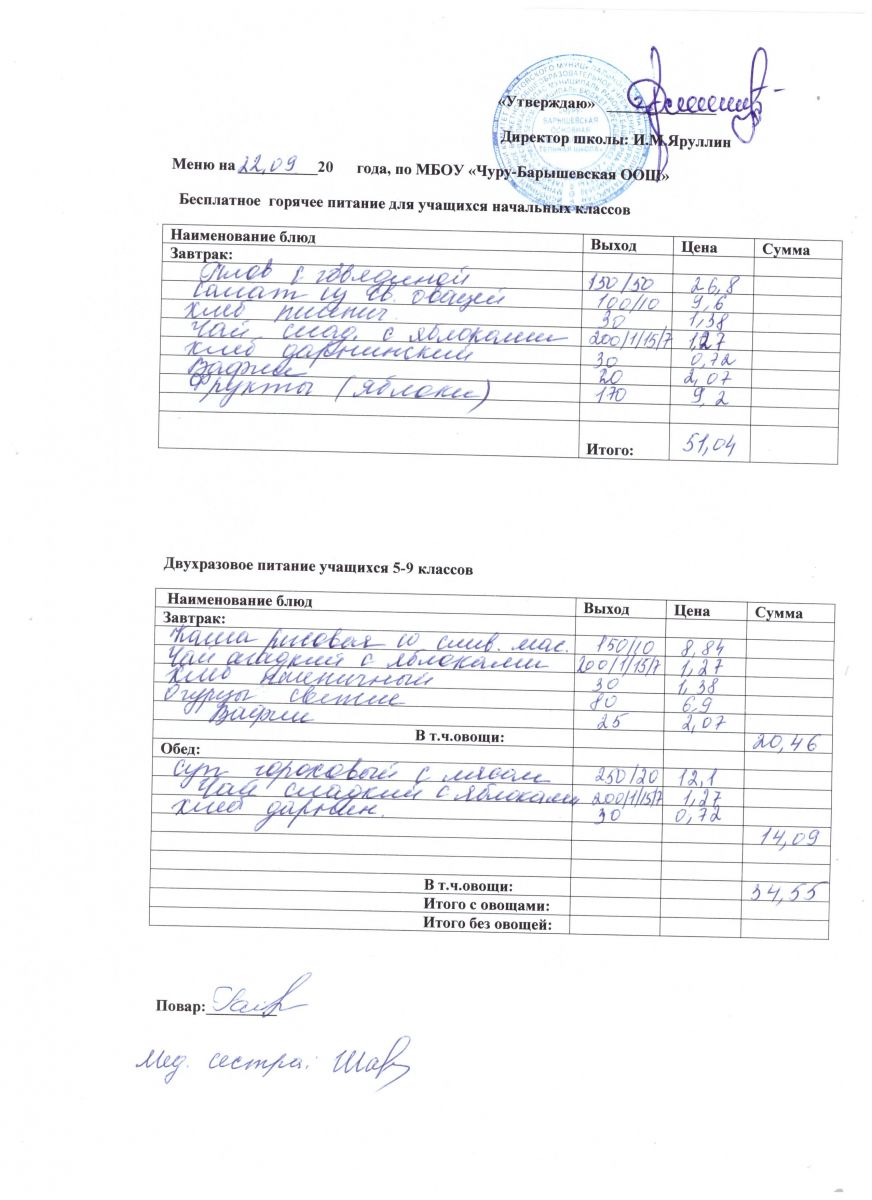 «Утверждаю»
Директор школы: И.М.Яруллин
Меню на 22,09 20 года, по МБОУ «Чуру-Барышевская ООШ»
Бесплатное горячее питание для учащихся начальных классов
Наименование блюд Выход Цена Сумма
Завтрак:
Плов с говядиной 150/50 26,8
Салат из св. овощей 100/10 9,6
Хлеб пшенич. 30 1,38
Чай слад. с яблоками 200/1/15/7 1,27
Хлеб дарнинский 30 0,72
Вафли 20 2,07
Фрукты (яблоки) 170 9,2
Итого: 51,04
Двухразовое питание учащихся 5-9 классов
Наименование блюд Выход Цена Сумма
Завтрак:
Каша рисовая со слив. мас. 150/10 8,84
Чай сладкий с яблоками 200/1/15/7 1,27
Хлеб пшеничный 30 1,38
Огурцы свежие 80 6,9
Вафли 25 2,07
В т.ч.овощи: 20,46
Обед:
Суп гороховый с мясом 250/20 12,1
Чай сладкий с яблоками 200/1/15/7 1,27
Хлеб дарнин. 30 0,72
14,09
В т.ч.овощи: 34,55
Итого с овощами:
Итого без овощей:
Повар:
Мед. сестра: